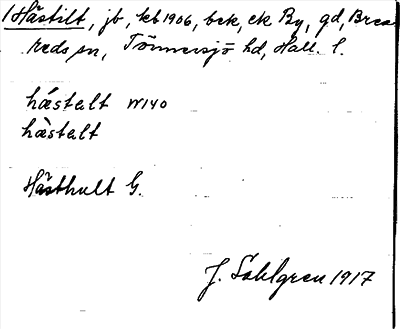 1 Hästilt, jb, kb 1906, bck, ek By, gd, Brea-
reds sn, Tönnersjö hd, Hall. l.
hástelt W140
hàstelt
Hästhult G.
J. Sahlgren 1917